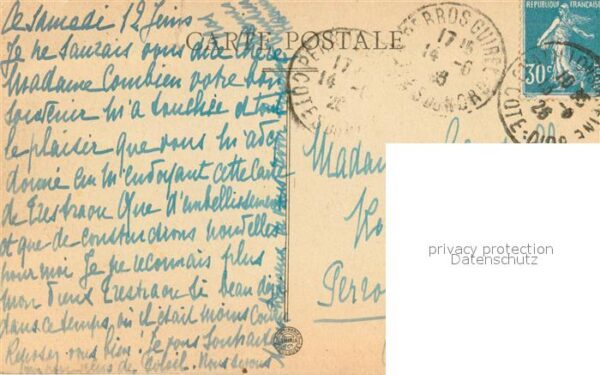 Ce Samedi 12 Juin
CARTE POSTALE
Je ne saurais vous dire chère
Madame Combien votre bon
souvenir m'a touchée et tout
le plaisir que vous m'avez
donné en m'envoyant cette Carte
de Trestraou Que d'embellissements
et que de constructions nouvelles
pour moi Je ne reconnais plus
mon vieux Trestraou Si beau déjà
dans ce temps, où il était moins
Reposez vous bien! Je vous souhaite
Soleil. Nous serons
PERROS GUIREC
17
14 -6
26
CÔTES DU NORD
REPUBLIQUE FRANÇAISE
30c
Madame
Perro
privacy protection
Datenschutz